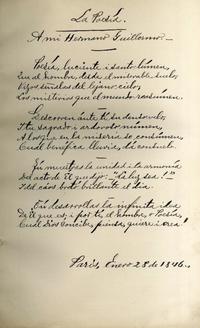 La Poesía.
A mi Hermano Guillermo.
Poesía, luciente i santo lúmen,
Da al hombre, desde el miserable suelo,
Vivas señales del lejano cielo,
Los misterios que el mundo
Descorren ante tí su denso velo;
I tu sagrado i ardoroso númen,
A los que en la miseria se consúmen,
Cual benéfica lluvia, dá consuelo.
Tú muestras la unidad i la armonía
Del acto de El que dijo: "La luz sea!"
I del cáos brotó brillante el dia.
Tú desarrollas la infinita idea
De El que es; i por tí, el hombre, o Poesía,
Cual Dios concibe, piensa, quiere i crea!
Paris, Enero 28 de 1846.